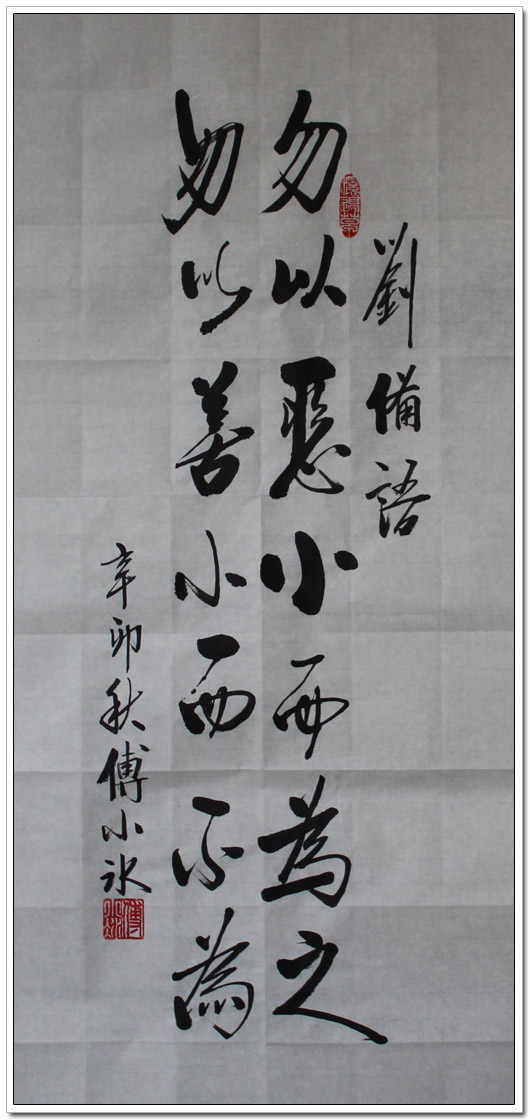 劉備語
勿以惡小而為之
勿以善小而不為
辛卯秋傅小冰